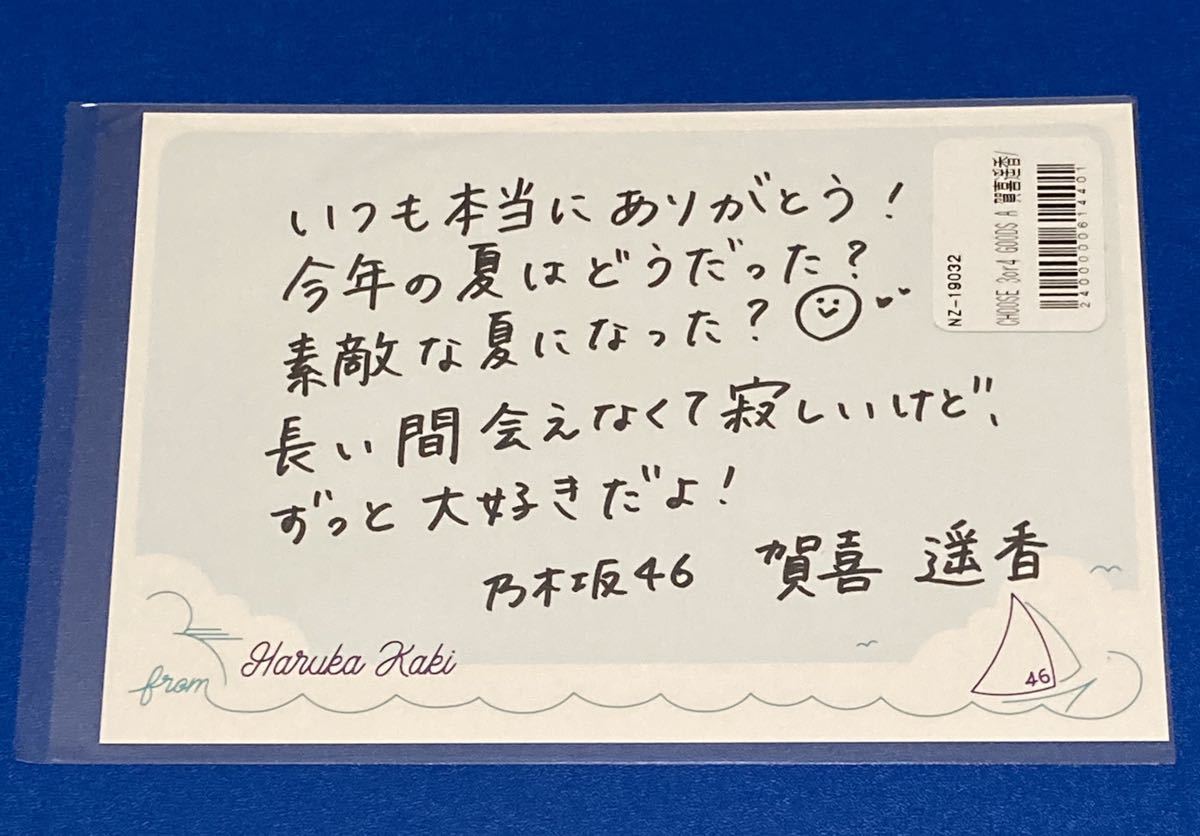 いつも本当にありがとう！
今年の夏はどうだった？
素敵な夏になった？
長い間会えなくて寂しいけど、
ずっと大好きだよ！
乃木坂46 賀喜 遥香
from Haruka Kaki
46
NZ-19032
CHOOSE 3or4 GOODS A 賀喜遥香/
2400000614401